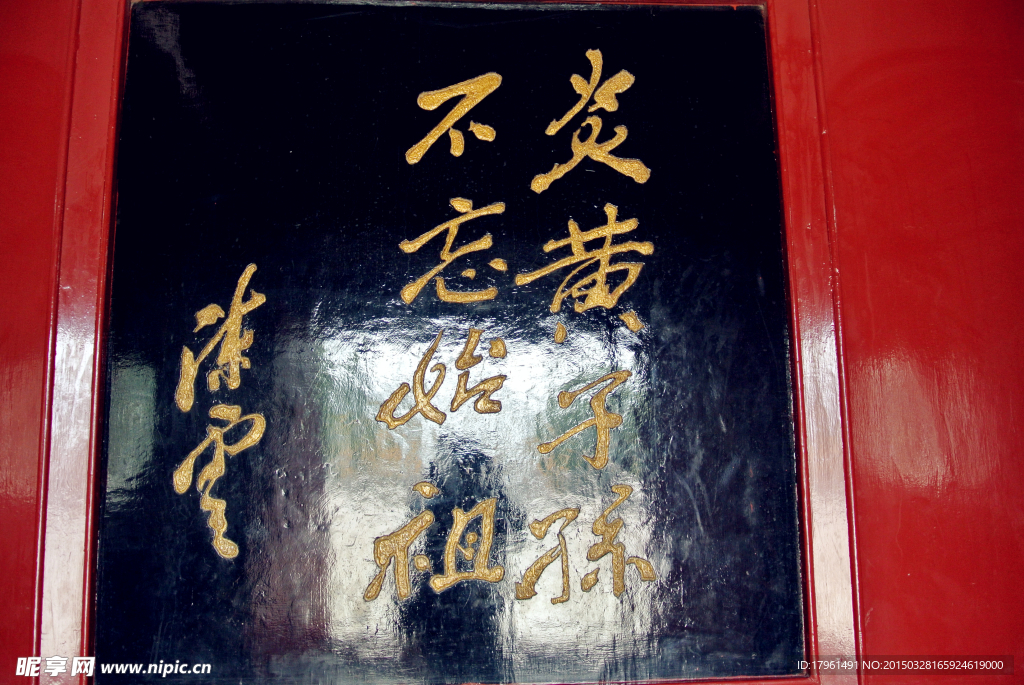 炎黄子孫
不忘始祖
陳雲
昵享网 www.nipic.cn
ID:17961491 NO:20150328165924619000